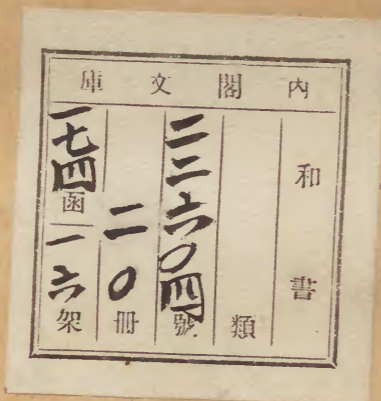 内閣文庫
和書
類
二二六〇四號
二〇冊
一七四函
一六架